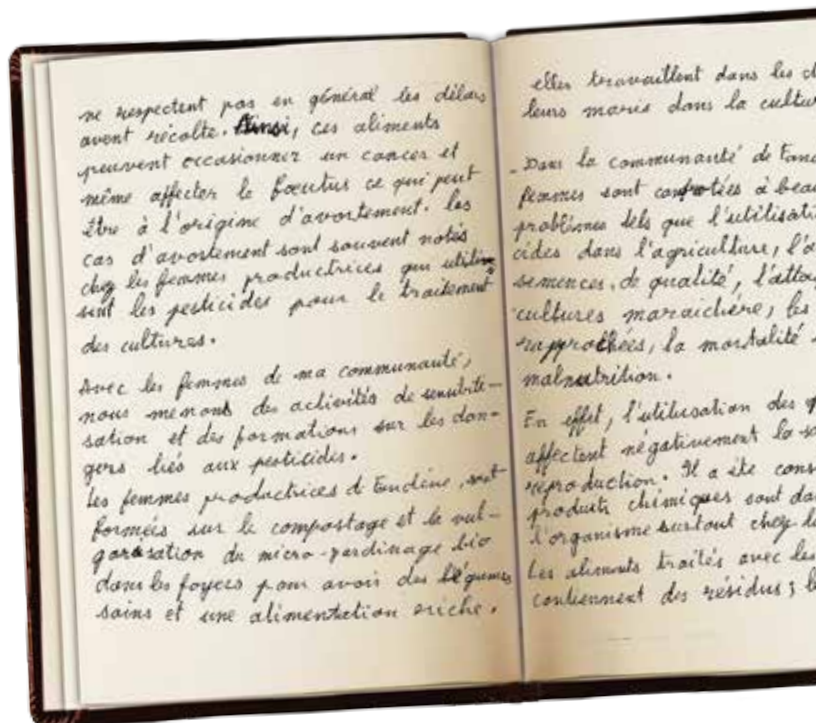 ne respectent pas en général les délais
avant récolte. Ainsi, ces aliments
peuvent occasionner un cancer et
même affecter le foeutus ce qui peut
être à l'origine d'avortement. les
cas d'avortement sont souvent notés
chez les femmes productrices qui utilisent
sent les pesticides pour le traitement
des cultures.
Avec les femmes de ma communauté,
nous menons des activités de sensibili-
sation et des formations sur les dan-
gers liés aux pesticides.
Les femmes productrices d Tendine, sont
formées sur le compostage et la vul-
garisation du micro-jardinage bio
dans les foyers pour avoir des légumes
sains et une alimentation riche.
elles travaillent dans les
leurs maris dans la
- Dans la communauté de
femmes sont confrotées à
problèmes tels que
cides dans l'agriculture,
semences, de qualité,
cultures maraichère, les
rapprochées, la mortalité
malnutrition.
En effet, l'utilisation des
affectent négativement la
reproduction. Il a été
produits chimiques sont
l'organisme surtout chez
Les aliments traités avec les
contiennent des résidus ;